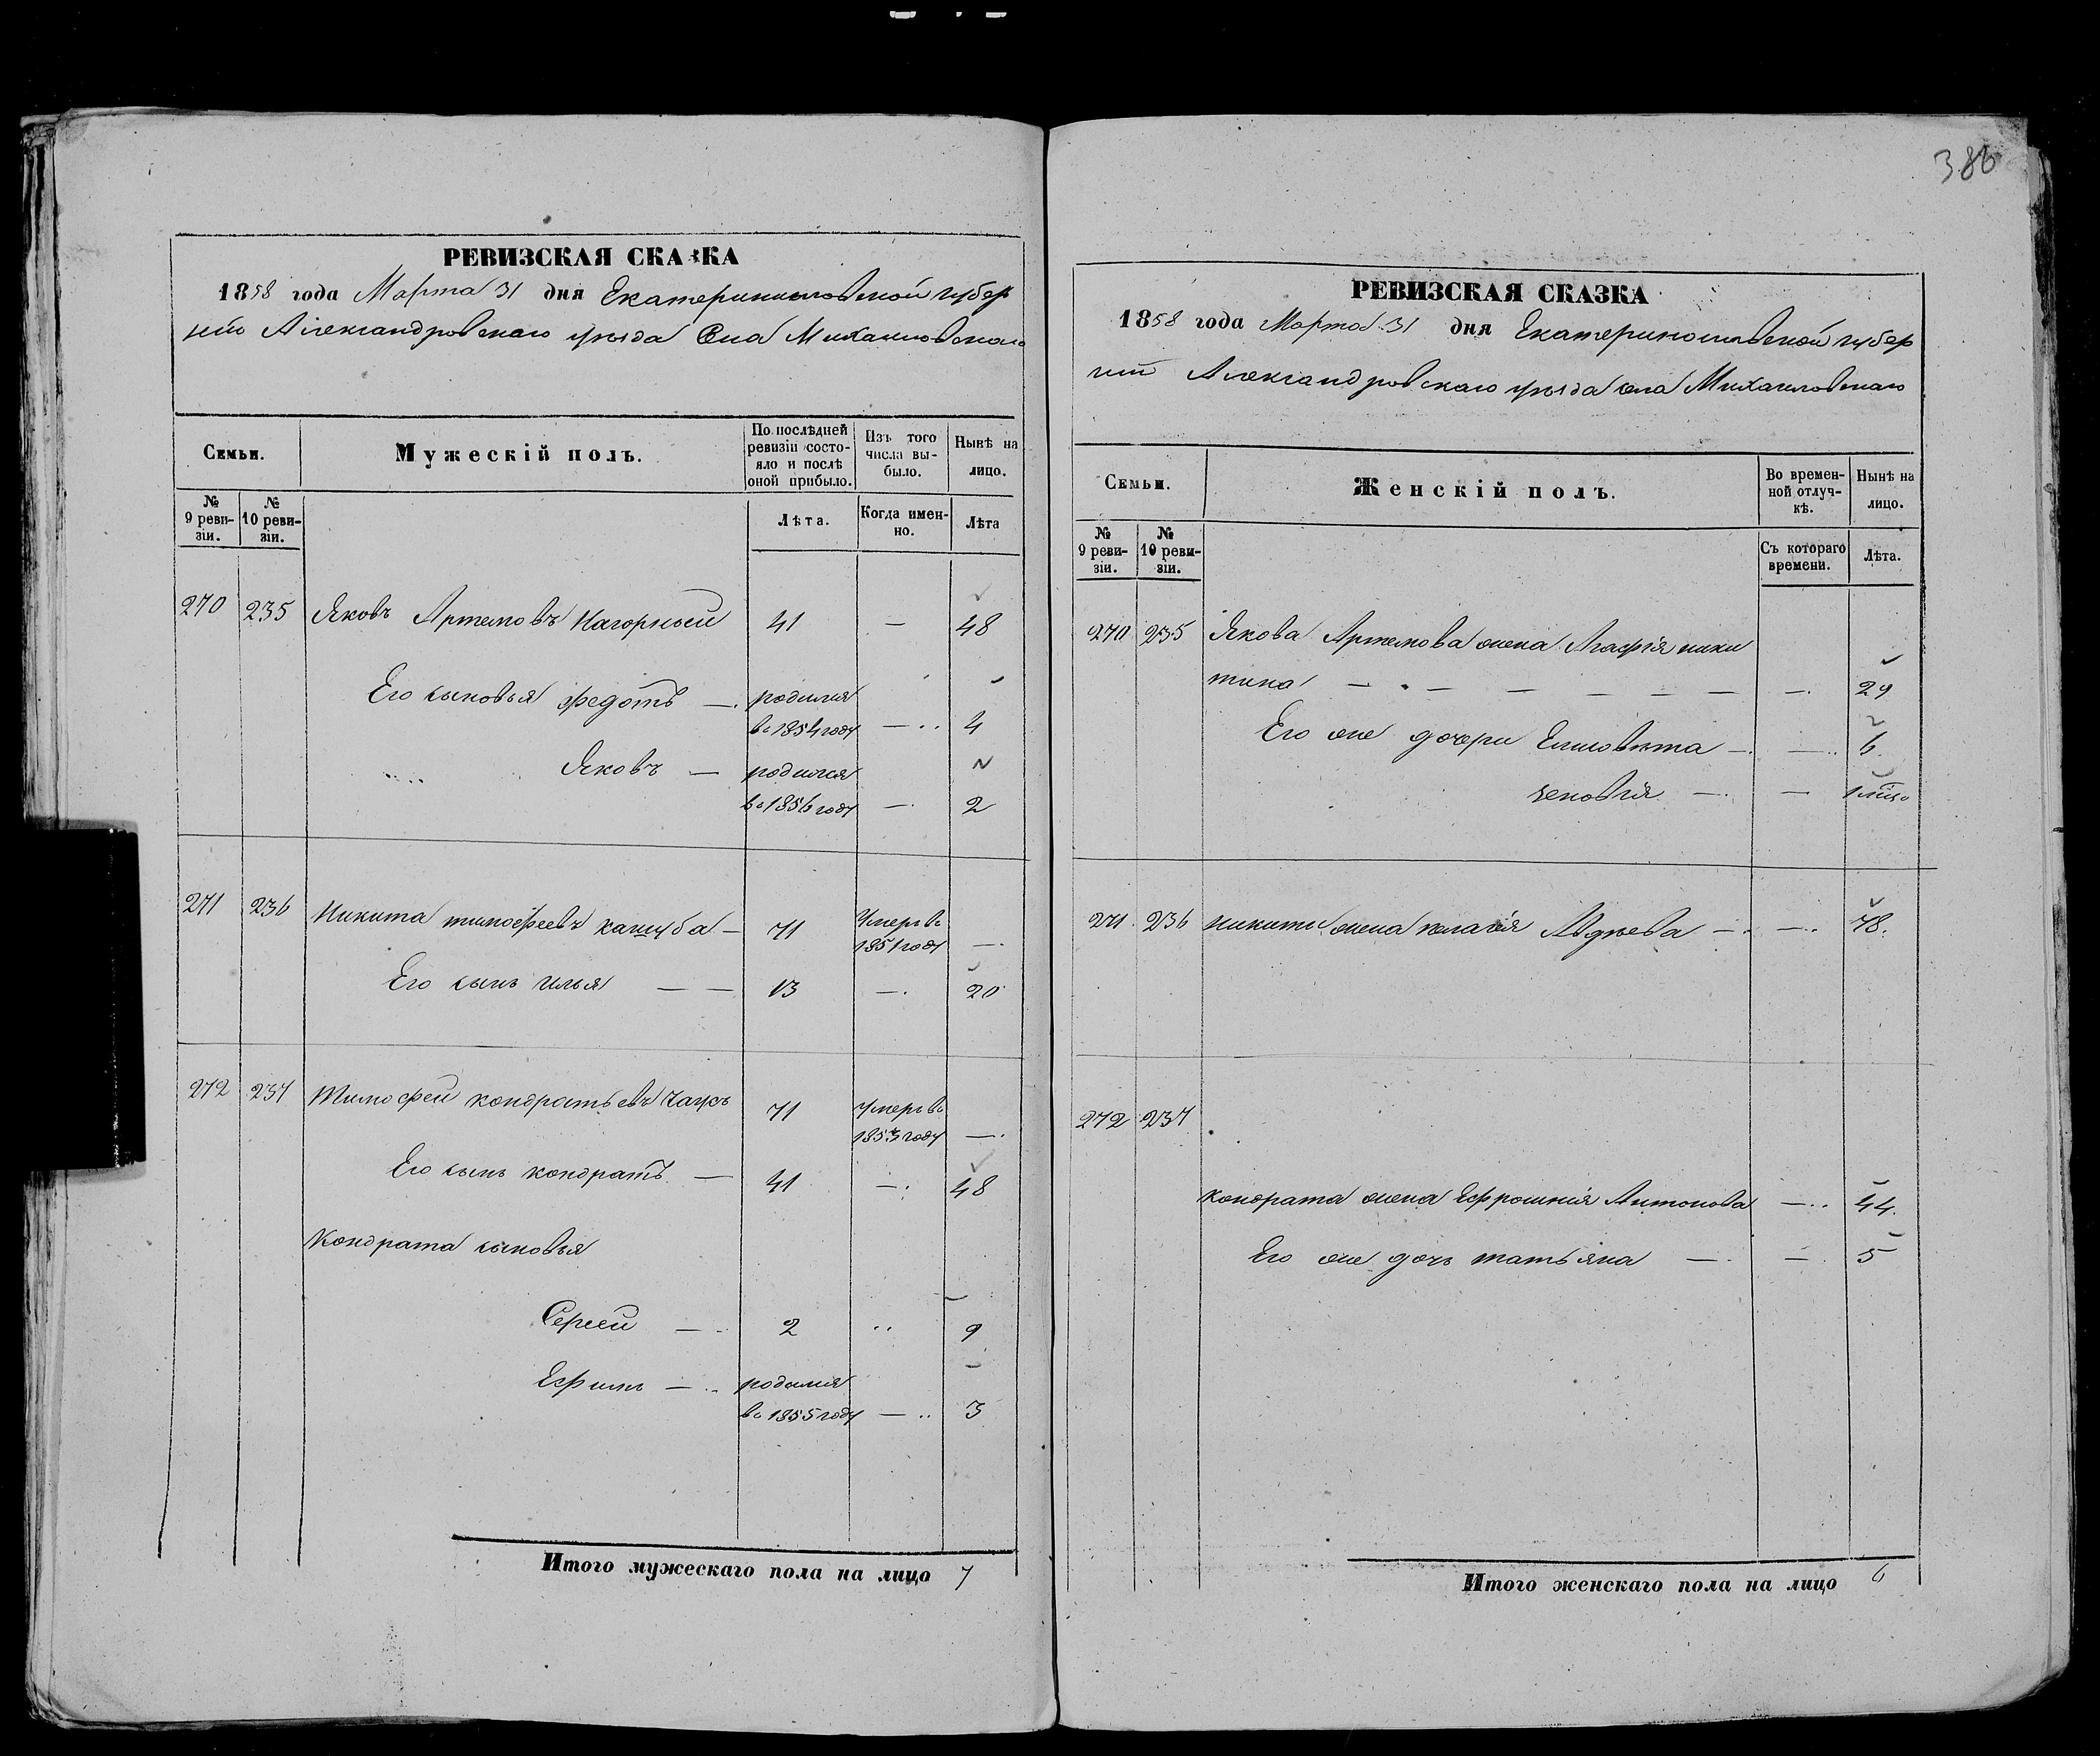 386
РЕВИЗСКАЯ СКАЗКА
1858 года Марта 31 дня Екатеринославской губер
нiи Александровскаго уѣзда Села Михайловскаго
Семьи.
Мужескiй полъ.
По послѣдней ревизiи состо-
яло и послѣ
оной прибыло.
Изъ того
числа вы-
было.
Нынѣ на
лицо.
№
9 реви-
зiи.
№
10 реви-
зiи.
Лѣта.
Когда имен-
но.
Лѣта
270 235 Яковъ Артемовъ Нагорный 41 — 48
Его сыновья Федотъ — родился
въ 1854 году — 4
Яковъ — родился
въ 1856 году — 2
271 236 Никита тимофеевъ кацуба — 71 Умеръ въ
1851 году —
Его сынъ илья — — 13 — 20
272 237 Тимофей кондратьевъ 71 Умеръ въ
1853 году —
Его сынъ кондратъ — 41 — 48
Кондрата сыновья
Сергей — 2 9
Ефимъ — родился
въ 1855 году — 3
Итого мужескаго пола на лицо 7
РЕВИЗСКАЯ СКАЗКА
1858 года Марта 31 дня Екатеринославской губер
нiи Александровскаго уѣзда села Михайловскаго
Семьи.
Женскiй полъ.
Во времен-
ной отлуч-
кѣ.
Нынѣ на
лицо.
№
9 реви-
зiи.
№
10 реви-
зiи.
Съ котораго
времени.
Лѣта.
270 235 Якова Артемова жена Агафiя ники
тина — — — — — — — 29
Его же дочери Елисовѣта — — 6
зеновiя — —
271 236 никиты жена пелагiя Авдѣева — — 48
272 237
кондрата жена Ефросинiя Антонова — 44
Его же дочь татьяна — — 5
Итого женскаго пола на лицо 6